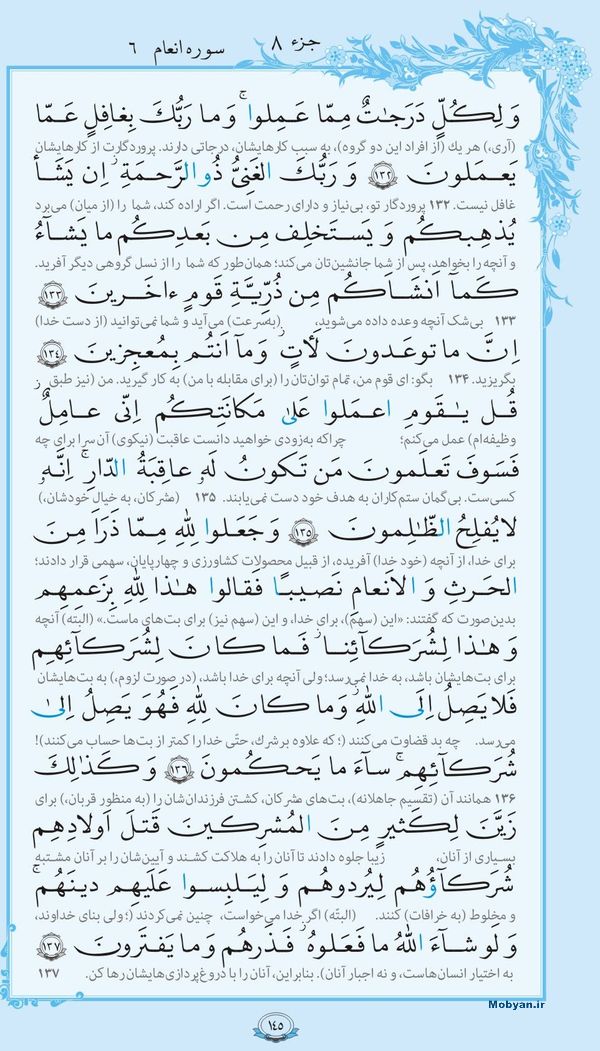 جزء ۸ سوره انعام ۶
وَ لِكُلٍّ دَرَجٰتٌ مِمّا عَمِلوا ۚ وَ ما رَبُّكَ بِغافِلٍ عَمّا
(آری،) هر یك (از افراد این دو گروه)، به سبب کارهایشان، درجاتی دارند. پروردگارت از کارهایشان
یَعمَلونَ ﴿۱۳۲﴾ وَ رَبُّكَ الغَنِیُّ ذُو الرَّحمَةِ ۚ اِن یَشَأ
غافل نیست. ۱۳۲ پروردگار تو، بی‌نیاز و دارای رحمت است. اگر اراده کند، شما را (از میان) می‌برد
یُذهِبكُم وَ یَستَخلِف مِن بَعدِكُم ما یَشآءُ
و آنچه را بخواهد، پس از شما جانشین‌تان می‌کند؛ همان‌طور که شما را از نسل گروهی دیگر آفرید.
كَمآ اَنشَاَكُم مِن ذُرِّیَّةِ قَومٍ ءاخَرینَ ﴿۱۳۳﴾
۱۳۳ بی‌شک آنچه وعده داده می‌شوید، (به‌سرعت) می‌آید و شما نمی‌توانید (از دست خدا)
اِنَّ ما توعَدونَ لَأاتٍ ۖ وَ ما اَنتُم بِمُعجِزینَ ﴿۱۳۴﴾
بگریزید. ۱۳۴ بگو: ای قوم من، تمام توان‌تان را (برای مقابله با من) به کار گیرید. من (نیز طبق
قُل یٰقَومِ اعمَلوا عَلیٰ مَكانَتِكُم اِنّی عامِلٌ ۖ
وظیفه‌ام) عمل می‌کنم؛ چراکه به‌زودی خواهید دانست عاقبت (نیکوی) آن سرا برای چه
فَسَوفَ تَعلَمونَ مَن تَكونُ لَهٗ عاقِبَةُ الدّارِ ۚ اِنَّهٗ
کسی‌ست. بی‌گمان ستم‌کاران به هدف خود دست نمی‌یابند. ۱۳۵ (مشرکان، به خیال خودشان،)
لا یُفلِحُ الظّٰلِمونَ ﴿۱۳۵﴾ وَ جَعَلوا لِلّٰهِ مِمّا ذَرَاَ مِنَ
برای خدا، از آنچه (خود خدا) آفریده، از قبیل محصولات کشاورزی و چهارپایان، سهمی قرار دادند؛
الحَرثِ وَ الاَنعامِ نَصیبًا فَقالوا هٰذا لِلّٰهِ بِزَعمِهِم
بدین‌صورت که گفتند: «این (سهم)، برای خدا، و این (سهم نیز) برای بت‌های ماست.» (البته) آنچه
وَ هٰذا لِشُرَكآئِنا ۖ فَما كانَ لِشُرَكآئِهِم
برای بت‌هایشان باشد، به خدا نمی‌رسد؛ ولی آنچه برای خدا باشد، (در صورت لزوم،) به بت‌هایشان
فَلا یَصِلُ اِلَی اللّٰهِ ۖ وَ ما كانَ لِلّٰهِ فَهُوَ یَصِلُ اِلیٰ
می‌رسد. چه بد قضاوت می‌کنند (؛ که علاوه بر شرك، حتّی خدا را کمتر از بت‌ها حساب می‌کنند)!
شُرَكآئِهِم ۗ سآءَ ما یَحكُمونَ ﴿۱۳۶﴾ وَ كَذٰلِكَ
۱۳۶ همانند آن (تقسیم جاهلانه)، بت‌های مشرکان، کشتن فرزندان‌شان را (به منظور قربان،) برای
زَیَّنَ لِكَثیرٍ مِنَ المُشرِكینَ قَتلَ اَولادِهِم
بسیاری از آنان، زیبا جلوه دادند تا آنان را به هلاکت کشند و آیین‌شان را بر آنان مشتبه
شُرَكآؤُهُم لِیُردوهُم وَ لِیَلبِسوا عَلَیهِم دینَهُم ۖ
و مخلوط (به خرافات) کنند. (البتّه) اگر خدا می‌خواست، چنین نمی‌کردند (؛ ولی بنای خداوند،
وَ لَو شآءَ اللّٰهُ ما فَعَلوهُ ۖ فَذَرهُم وَ ما یَفتَرونَ ﴿۱۳۷﴾
به اختیار انسان‌هاست، و نه اجبار آنان). بنابراین، آنان را با دروغ‌پردازی‌هایشان رها کن. ۱۳۷
Mobyan.ir
۱۴۵